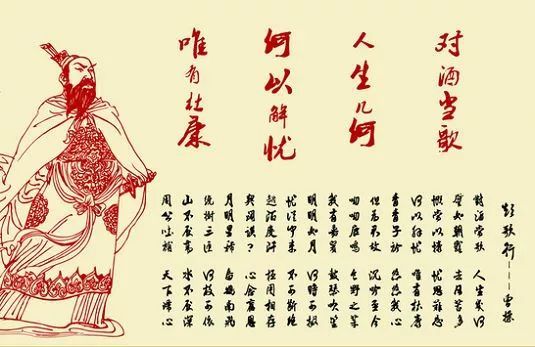 对酒当歌
人生几何
何以解忧
唯有杜康
短歌行——曹操
对酒当歌 人生几何
譬如朝露 去日苦多
慨当以慷 忧思难忘
何以解忧 唯有杜康
青青子衿 悠悠我心
但为君故 沉吟至今
呦呦鹿鸣 食野之苹
我有嘉宾 鼓瑟吹笙
明明如月 何时可掇
忧从中来 不可断绝
越陌度阡 枉用相存
契阔谈？ 心念旧恩
月明星稀 乌鹊南飞
绕树三匝 何枝可依
山不厌高 水不厌深
周公吐哺 天下归心